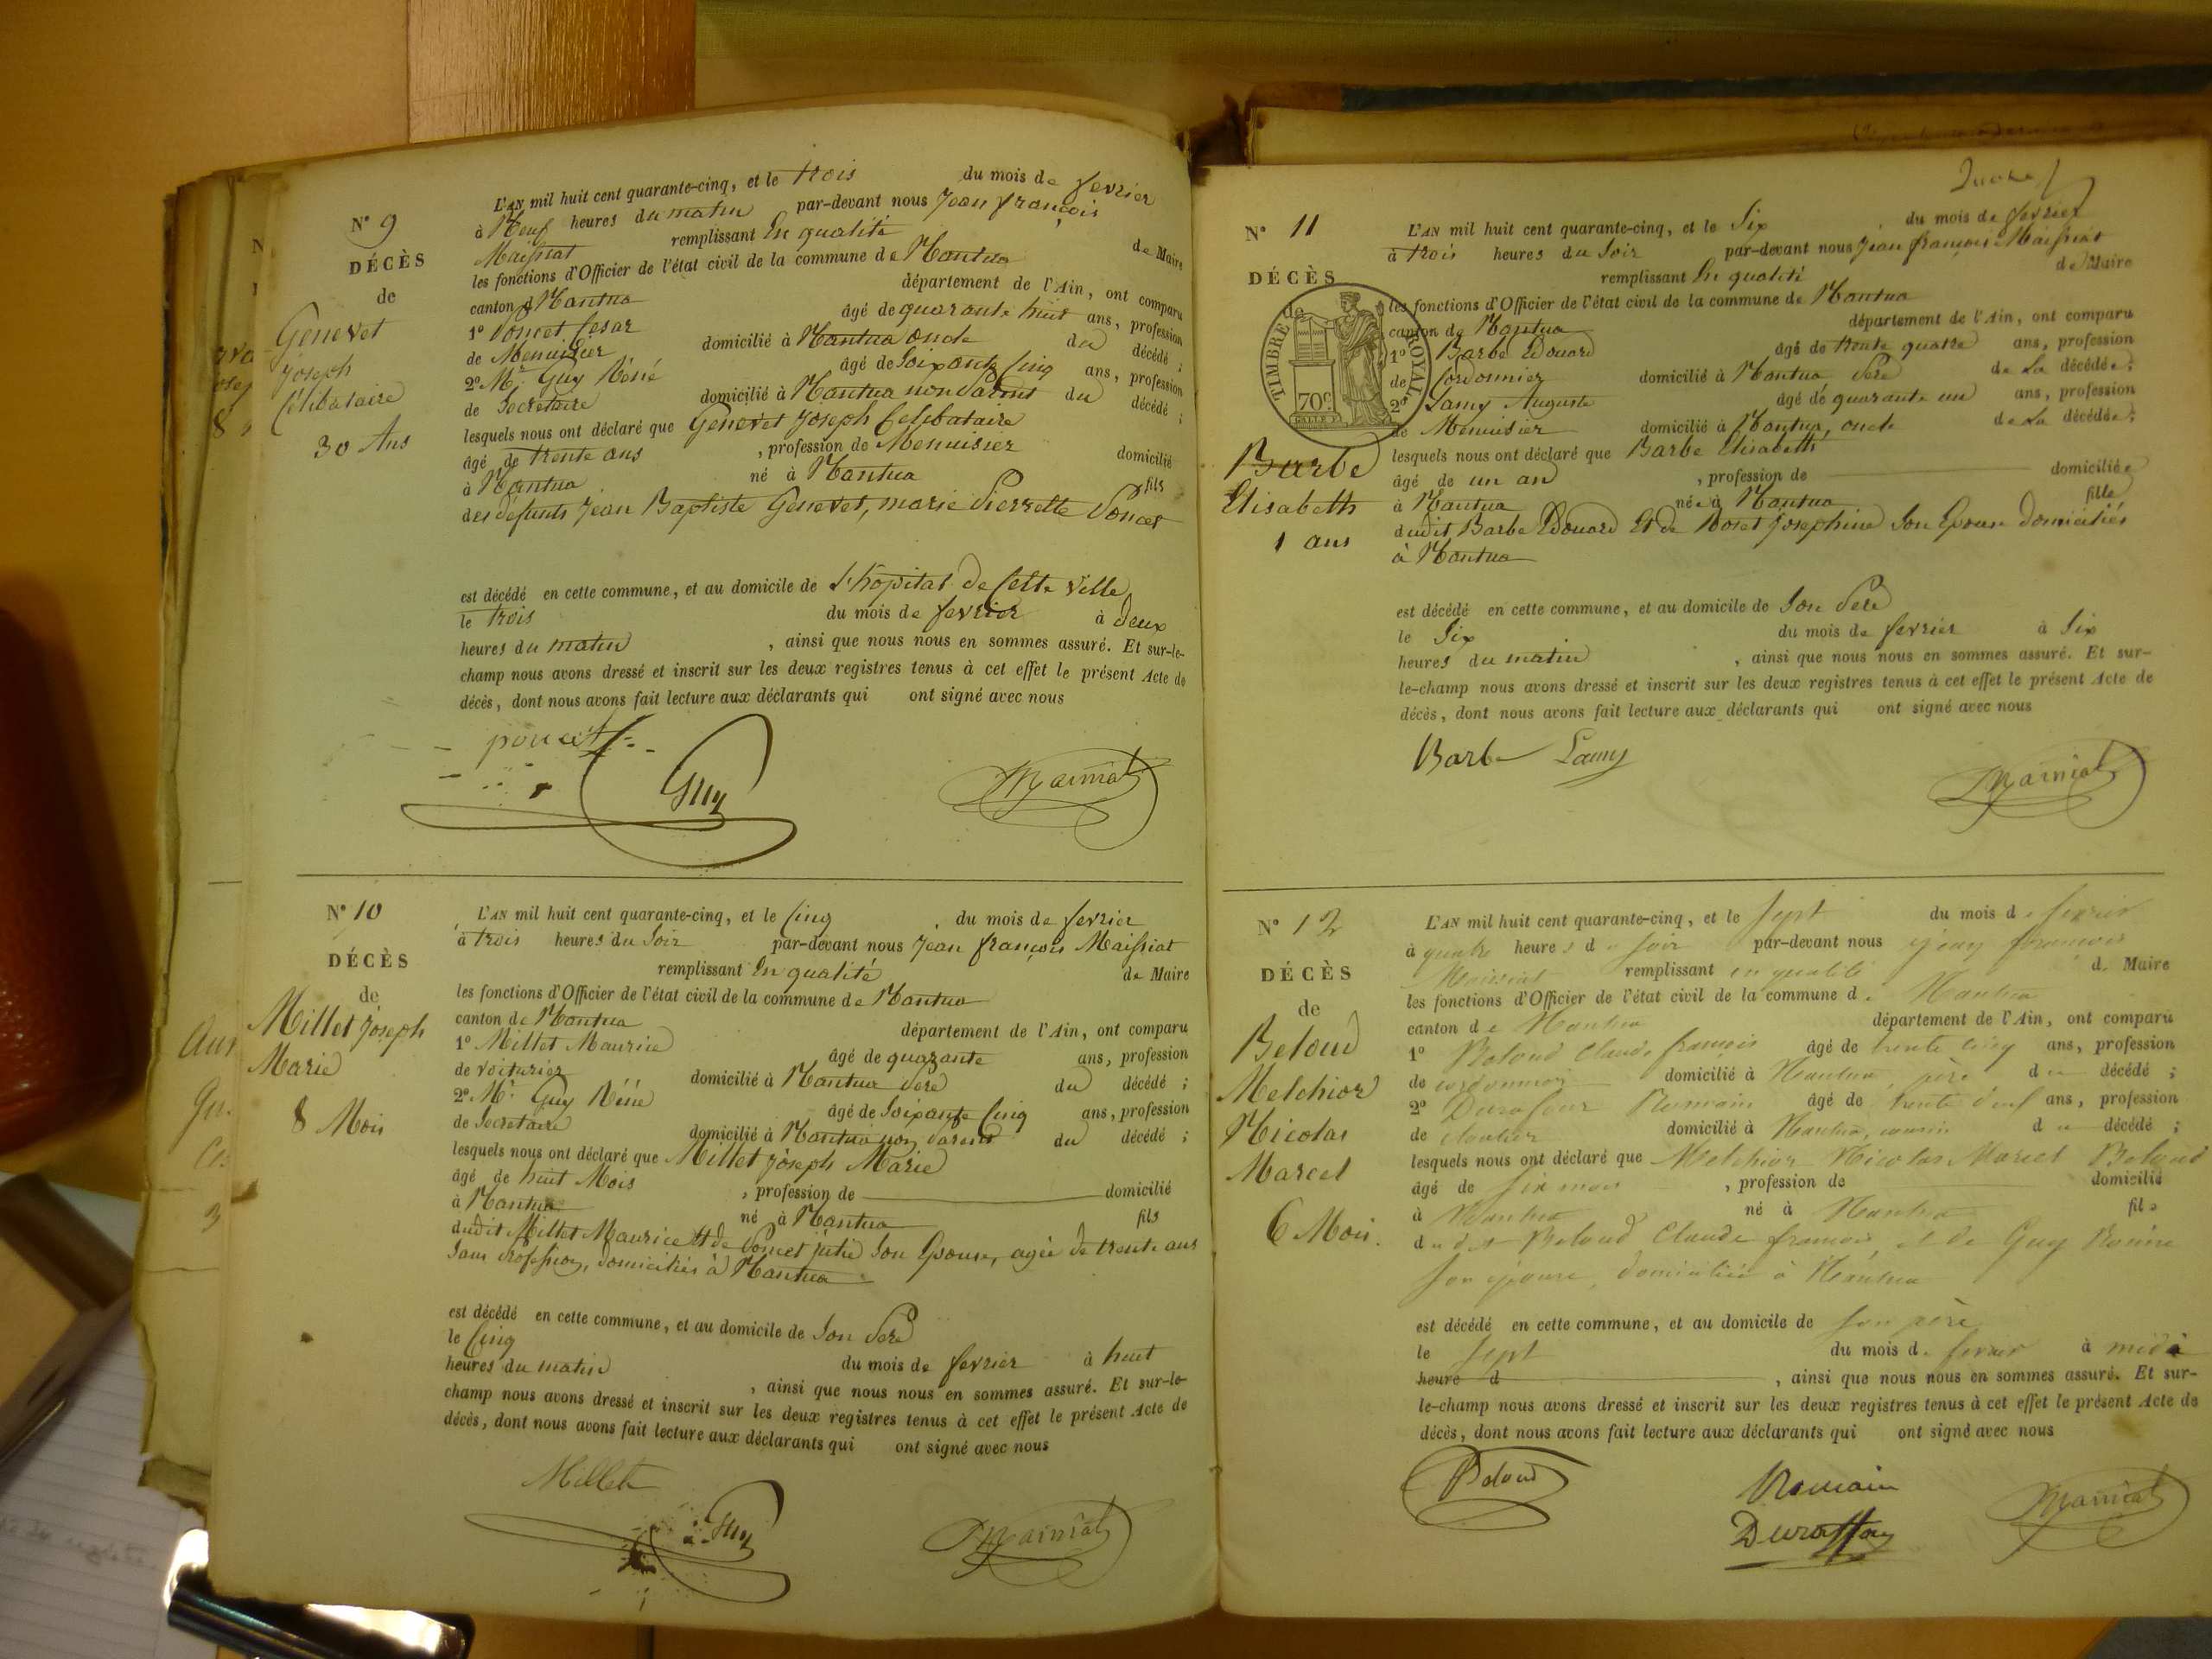 N° 9
DÉCÈS
de
Genevet
Joseph
Célibataire
30 Ans
L'AN mil huit cent quarante-cinq, et le trois du mois de fevrier
à Neuf heures du matin par-devant nous Jean françois
Maissiat remplissant En qualité de Maire
les fonctions d'Officier de l'état civil de la commune de Nantua
canton de Nantua département de l'Ain, ont comparu
1° Poncet Cesar âgé de quarante huit ans, profession
de Menuisier domicilié à Nantua oncle du décédé ;
2° Mr. Guy Réné âgé de Soixante Cinq ans, profession
de Secretaire domicilié à Nantua non parent du décédé ;
lesquels nous ont déclaré que Genevet Joseph Celibataire
âgé de trente ans , profession de Menuisier domicilié
à Nantua né à Nantua fils
des défunts Jean Baptiste Genevet, marie Pierrette Poncet
est décédé en cette commune, et au domicile de L'hopital de Cette ville
le trois du mois de fevrier à deux
heures du matin , ainsi que nous nous en sommes assuré. Et sur-le-
champ nous avons dressé et inscrit sur les deux registres tenus à cet effet le présent Acte de
décès, dont nous avons fait lecture aux déclarants qui ont signé avec nous
poncet
Guy
Maissiat
N° 10
DÉCÈS
de
Millet Joseph
Marie
8 Mois
L'AN mil huit cent quarante-cinq, et le Cinq du mois de fevrier
à trois heures du Soir par-devant nous Jean françois Maissiat
remplissant En qualité de Maire
les fonctions d'Officier de l'état civil de la commune de Nantua
canton de Nantua département de l'Ain, ont comparu
1° Millet Maurice âgé de quarante ans, profession
de voiturier domicilié à Nantua Pere du décédé ;
2° Mr. Guy Réné âgé de Soixante Cinq ans, profession
de Secretaire domicilié à Nantua non parent du décédé ;
lesquels nous ont déclaré que Millet Joseph Marie
âgé de huit Mois , profession de domicilié
à Nantua né à Nantua fils
dudit Millet Maurice et de Poncet julie Son Epouse, agée de trente ans
Sans Profession, domiciliés à Nantua
est décédé en cette commune, et au domicile de Son Pere
le Cinq du mois de fevrier à huit
heures du matin , ainsi que nous nous en sommes assuré. Et sur-le-
champ nous avons dressé et inscrit sur les deux registres tenus à cet effet le présent Acte de
décès, dont nous avons fait lecture aux déclarants qui ont signé avec nous
Millet
Guy
Maissiat
N° 11
DÉCÈS
de
TIMBRE ROYAL
70c.
Barbe
Elisabeth
1 ans
L'AN mil huit cent quarante-cinq, et le Six du mois de fevrier
à trois heures du Soir par-devant nous Jean françois Maissiat
remplissant En qualité de Maire
les fonctions d'Officier de l'état civil de la commune de Nantua
canton de Nantua département de l'Ain, ont comparu
1° Barbe Edouard âgé de trente quatre ans, profession
de Cordonnier domicilié à Nantua Pere de La décédée ;
2° Lamy Auguste âgé de quarante un ans, profession
de Menuisier domicilié à Nantua, oncle de La décédée ;
lesquels nous ont déclaré que Barbe Elisabeth
âgé de un an , profession de domiciliée
à Nantua née à Nantua fille
dudit Barbe Edouard Et de Josephine Son Epouse domiciliés
à Nantua
est décédé en cette commune, et au domicile de Son Pere
le Six du mois de fevrier à Six
heures du matin , ainsi que nous nous en sommes assuré. Et sur-
le-champ nous avons dressé et inscrit sur les deux registres tenus à cet effet le présent Acte de
décès, dont nous avons fait lecture aux déclarants qui ont signé avec nous
Barbe Lamy
Maissiat
N° 12
DÉCÈS
de
Beloud
Melchior
Nicolas
Marcel
6 Mois.
L'AN mil huit cent quarante-cinq, et le Sept du mois de fevrier
à quatre heures du soir par-devant nous jean françois
Maissiat remplissant en qualité de Maire
les fonctions d'Officier de l'état civil de la commune de Nantua
canton de Nantua département de l'Ain, ont comparu
1° Beloud Claude françois âgé de trente cinq ans, profession
de cordonnier domicilié à Nantua, père du décédé ;
2° Durafour Romain âgé de trente neuf ans, profession
de domicilié à Nantua, cousin du décédé ;
lesquels nous ont déclaré que Melchior Nicolas Marcel Beloud
âgé de six mois , profession de domicilié
à Nantua né à Nantua fils
dudit Beloud Claude françois et de Guy
son épouse, domiciliés à Nantua
est décédé en cette commune, et au domicile de son père
le sept du mois de fevrier à midi
heure d , ainsi que nous nous en sommes assuré. Et sur-
le-champ nous avons dressé et inscrit sur les deux registres tenus à cet effet le présent Acte de
décès, dont nous avons fait lecture aux déclarants qui ont signé avec nous
Beloud
Romain
Maissiat